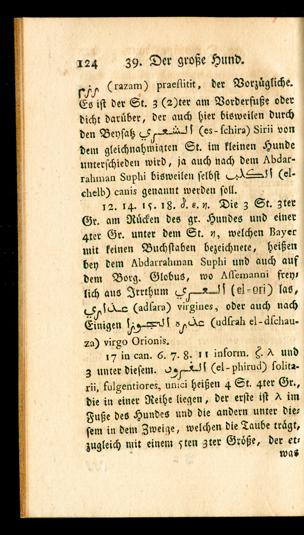 124 39. Der große Hund.
رزم (razam) praestitit, der Vorzügliche.
Es ist der St. 3 (2)ter am Vorderfuße oder
dicht darüber, der auch hier bisweilen durch
den Beysatz الشعري (es-schira) Sirii von
dem gleichnahmigten St. im kleinen Hunde
unterschieden wird, ja auch nach dem Abdar-
rahman Suphi bisweilen selbst الكلب (el-
chelb) canis genannt werden soll.
12. 14. 15. 18. δ. ε. η. Die 3 St. 3ter
Gr. am Rücken des gr. Hundes und einer
4ter Gr. unter dem St. η, welchen Bayer
mit keinen Buchstaben bezeichnete, heißen
bey dem Abdarrahman Suphi und auch auf
dem Borg. Globus, wo Assemanni frey-
lich aus Irrthum العري (el-ori) las,
عذاري (adsara) virgines, oder auch nach
Einigen عذرة الجوزا (udsrah el-dschau-
za) virgo Orionis.
17 in can. 6. 7. 8. 11 inform. ζ. λ und
3 unter diesem. الفرود (el-phirud) solita-
rii, fulgentiores, unici heißen 4 St. 4ter Gr.,
die in einer Reihe liegen, der erste ist λ im
Fuße des Hundes und die andern unter die-
sem in dem Zweige, welchen die Taube trägt,
zugleich mit einem 5ten 3ter Größe, der et-
was